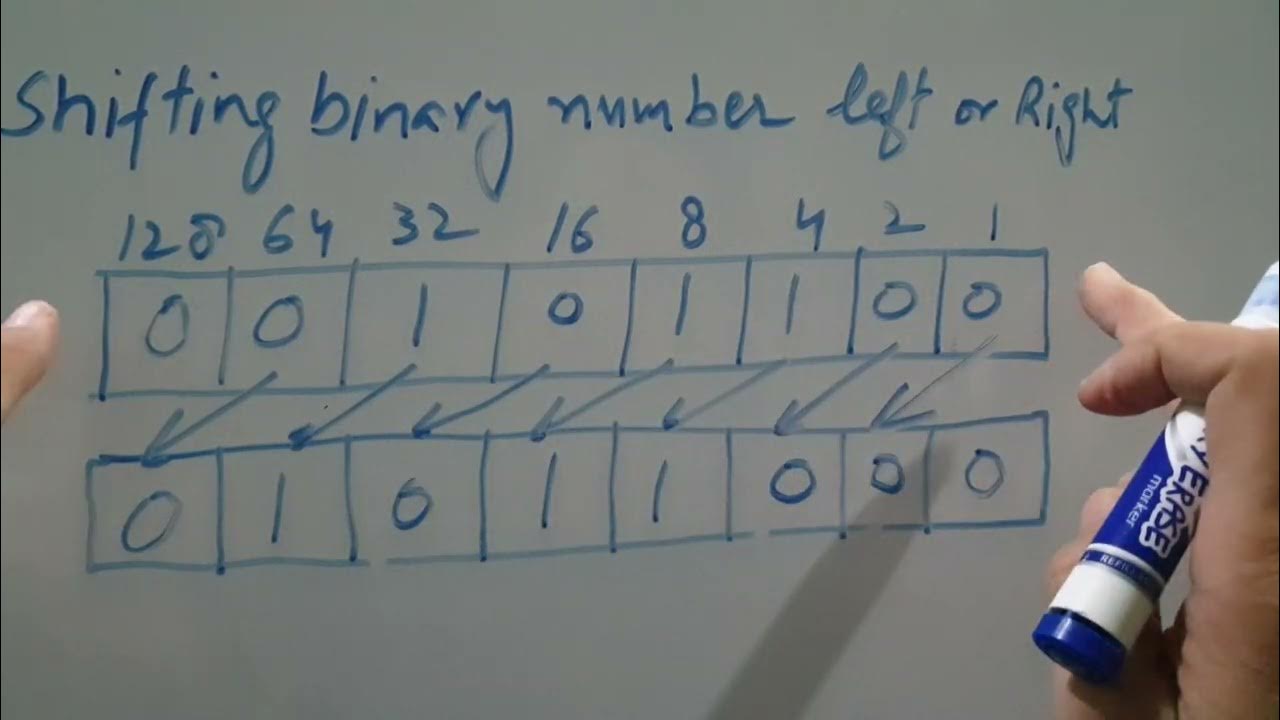 Shifting binary number left or Right
128 64 32 16 8 4 2 1
0 0 1 0 1 1 0 0
0 1 0 1 1 0 0 0
ERASE
marker